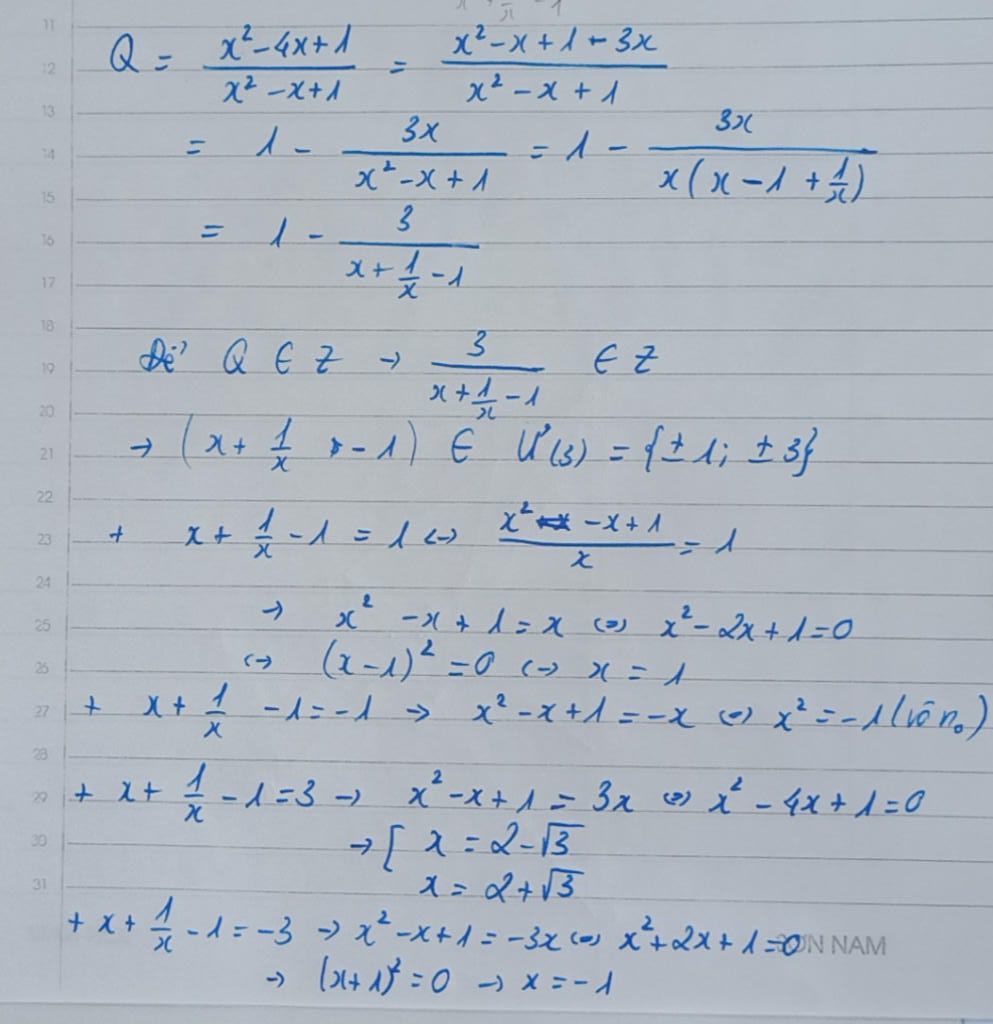 Q = \frac{x^2-4x+1}{x^2-x+1} = \frac{x^2-x+1-3x}{x^2-x+1}
= 1 - \frac{3x}{x^2-x+1} = 1 - \frac{3x}{x(x-1+\frac{1}{x})}
= 1 - \frac{3}{x+\frac{1}{x}-1}
Để Q ∈ Z → \frac{3}{x+\frac{1}{x}-1} ∈ Z
→ (x + \frac{1}{x} - 1) ∈ Ư(3) = {± 1; ± 3}
+ x + \frac{1}{x} - 1 = 1 <-> \frac{x^2-x+1}{x} = 1
→ x^2 - x + 1 = x <=> x^2 - 2x + 1 = 0
<-> (x-1)^2 = 0 <-> x = 1
+ x + \frac{1}{x} - 1 = -1 → x^2 - x + 1 = -x <=> x^2 = -1 (vô n_o)
+ x + \frac{1}{x} - 1 = 3 → x^2 - x + 1 = 3x <=> x^2 - 4x + 1 = 0
→ [ x = 2 - \sqrt{3}
x = 2 + \sqrt{3}
+ x + \frac{1}{x} - 1 = -3 → x^2 - x + 1 = -3x <=> x^2 + 2x + 1 = 0
→ (x+1)^2 = 0 → x = -1
11
12
13
14
15
16
17
18
19
20
21
22
23
24
25
26
27
28
29
30
31